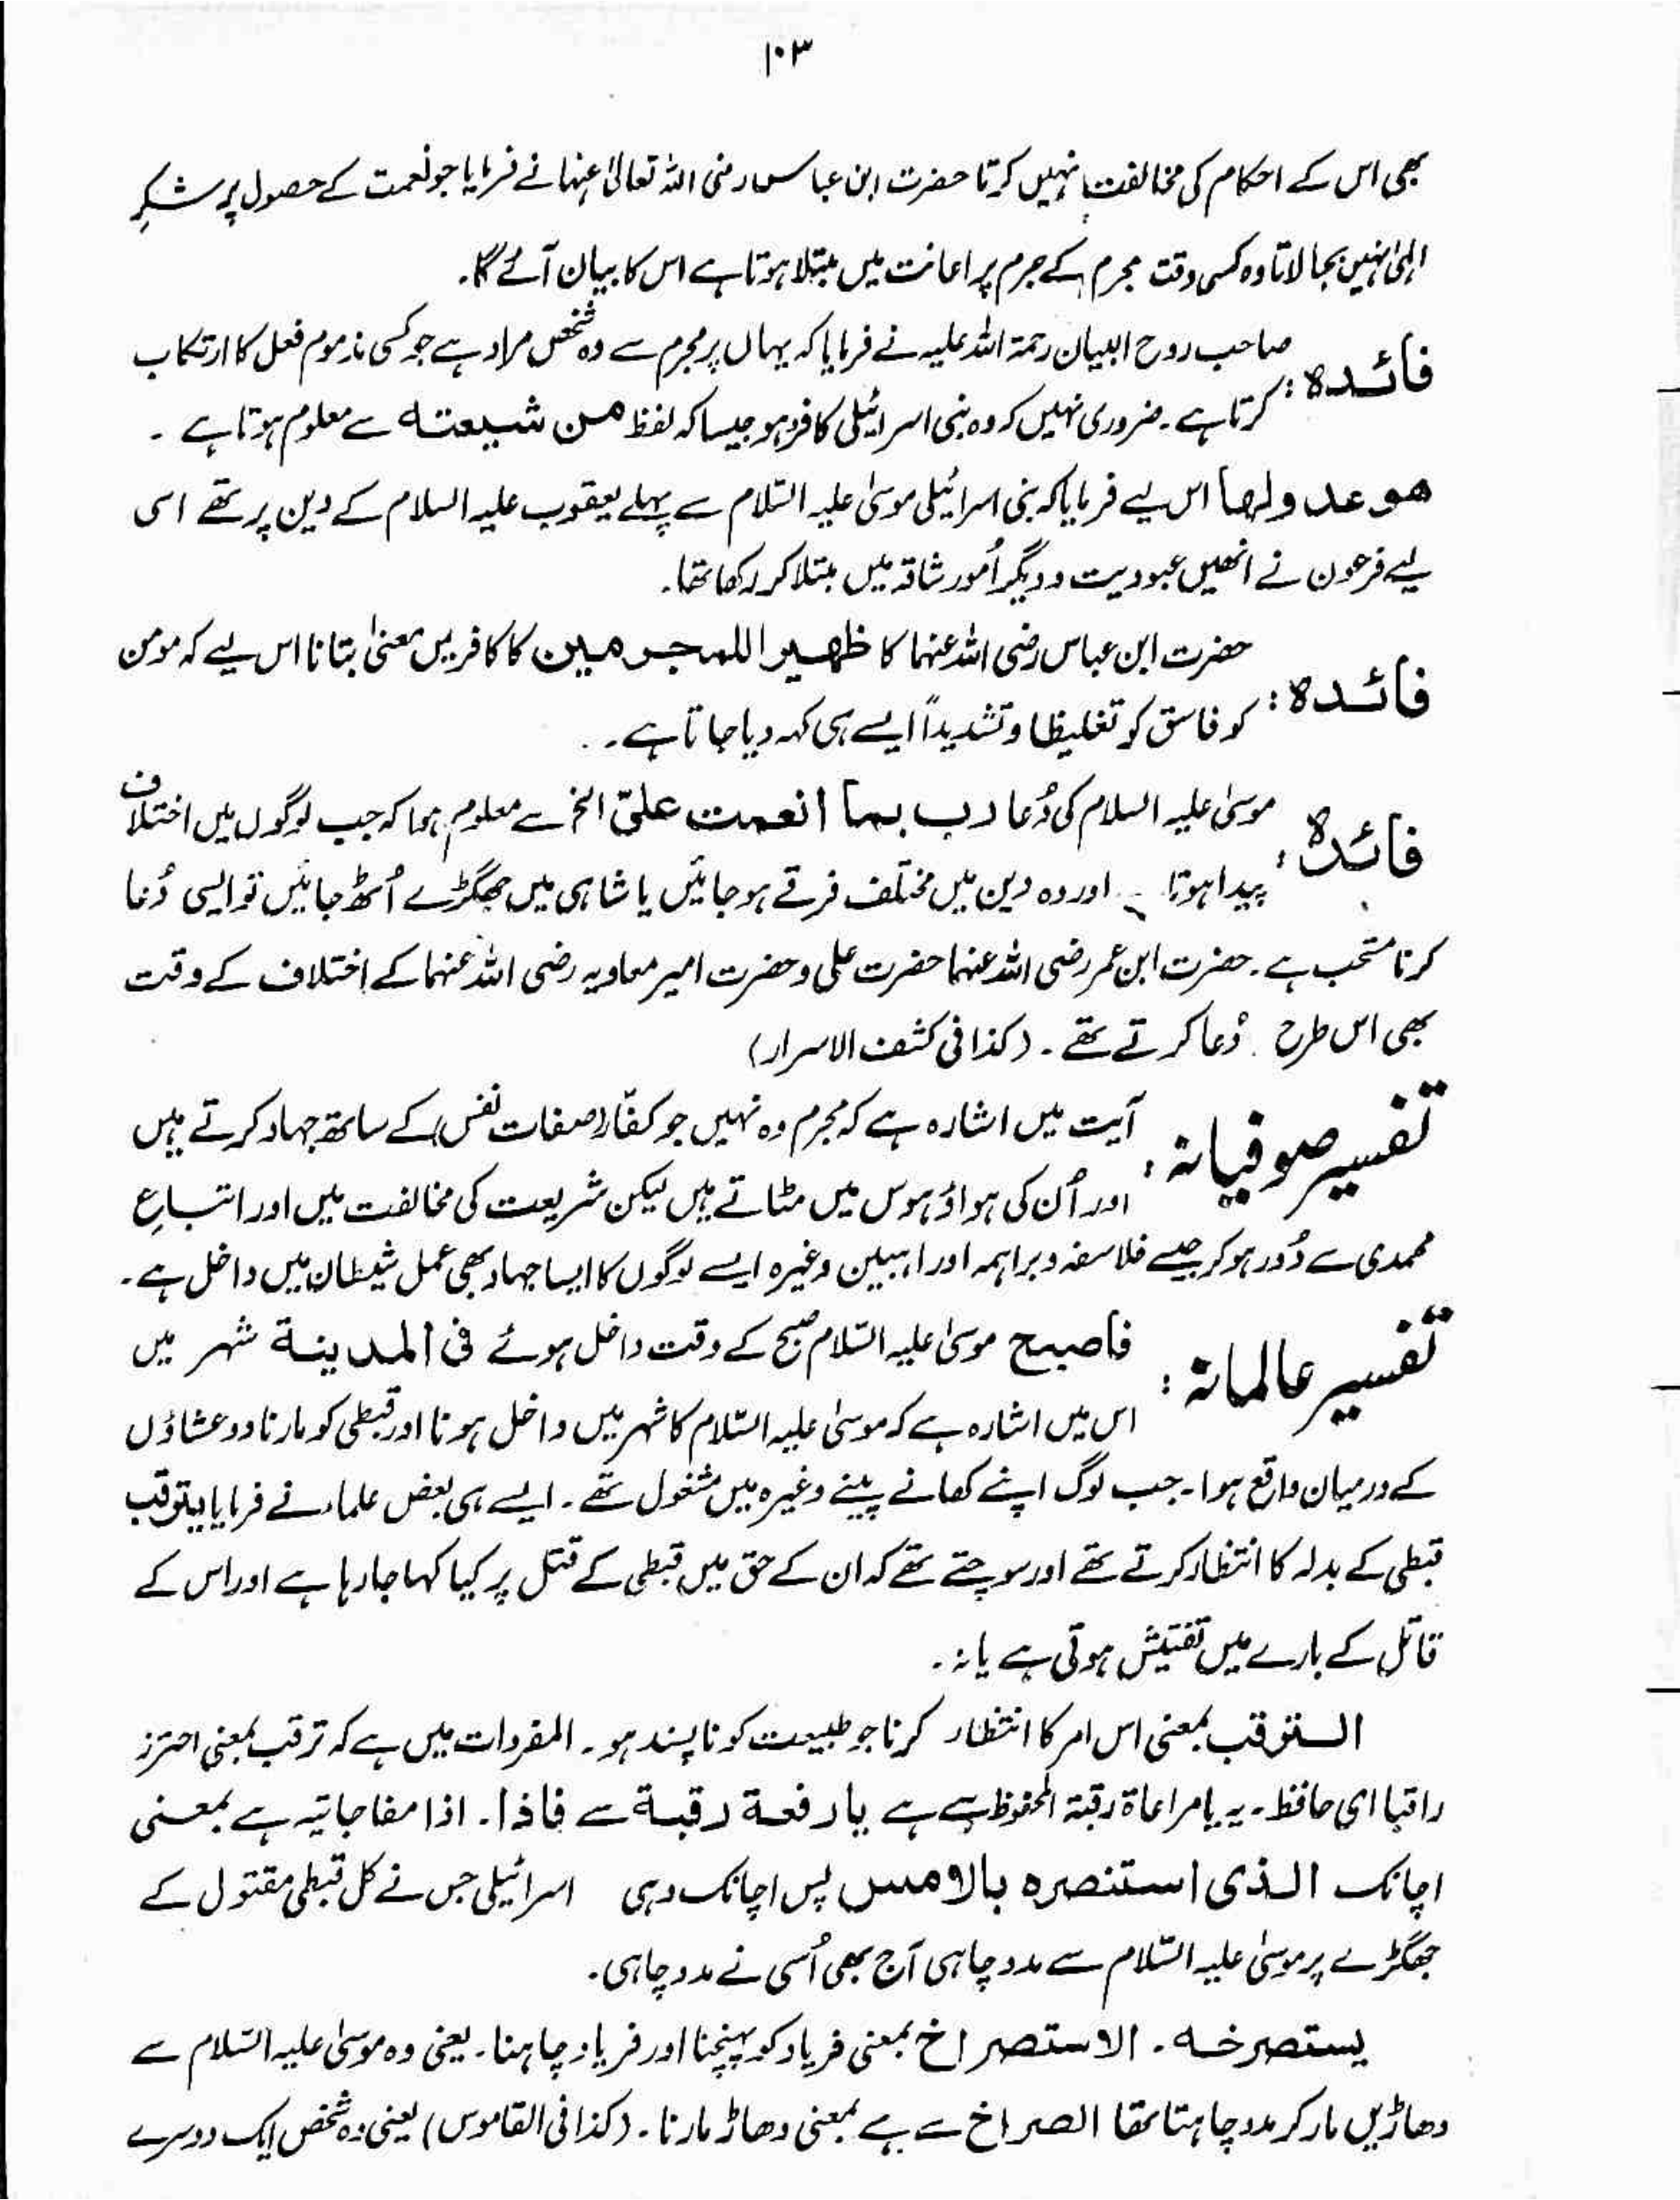 ۱۰۳
بھی اس کے احکام کی مخالفت نہیں کرتا حضرت ابن عباس رضی اللہ تعالیٰ عنہما نے فرمایا جو نعمت کے حصول پر شکرِ
الہٰی نہیں بجا لاتا وہ کسی وقت مجرم کے جرم پر اعانت میں مبتلا ہوتا ہے اس کا بیان آئے گا۔
فائدہ : صاحب روح البیان رحمۃ اللہ علیہ نے فرمایا کہ یہاں پر مجرم سے وہ شخص مراد ہے جو کسی مذموم فعل کا ارتکاب
کرتا ہے۔ ضروری نہیں کہ وہ بنی اسرائیلی کافر ہو جیسا کہ لفظ من شیعتہ سے معلوم ہوتا ہے ۔
ھو عدولھا اس لیے فرمایا کہ بنی اسرائیلی موسیٰ علیہ السّلام سے پہلے یعقوب علیہ السلام کے دین پر تھے اسی
لیے فرعون نے انھیں عبودیت و دیگر اُمور شاقہ میں مبتلا کر رکھا تھا۔
فائدہ : حضرت ابن عباس رضی اللہ عنہما کا ظھیرا للمجرمین کا کافریں معنیٰ بتانا اس لیے کہ مومن
کو فاسق کو تغلیظا و تشدیداً ایسے ہی کہہ دیا جاتا ہے۔
فائدہ : موسیٰ علیہ السلام کی دُعا رب بما انعمت علیّ الخ سے معلوم ہوا کہ جب لوگوں میں اختلاف
پیدا ہوتا اور وہ دین میں مختلف فرقے ہو جائیں یا شاہی میں جھگڑے اُٹھ جائیں تو ایسی دُعا
کرنا مستحب ہے۔ حضرت ابن عمر رضی اللہ عنہما حضرت علی و حضرت امیر معاویہ رضی اللہ عنہما کے اختلاف کے وقت
بھی اس طرح دُعا کرتے تھے ۔ (کذا فی کشف الاسرار)
تفسیر صوفیانہ : آیت میں اشارہ ہے کہ مجرم وہ نہیں جو کفّار (صفات نفس) کے ساتھ جہاد کرتے ہیں
اور اُن کی ہوا و ہوس میں مٹاتے ہیں لیکن شریعت کی مخالفت میں اور اتباعِ
محمدی سے دُور ہو کر جیسے فلاسفہ و براہمہ اور وغیرہ ایسے لوگوں کا ایسا جہاد بھی عمل شیطان میں داخل ہے۔
تفسیر عالمانہ : فاصبح موسیٰ علیہ السّلام صبح کے وقت داخل ہوئے فی المدینۃ شہر میں
اس میں اشارہ ہے کہ موسیٰ علیہ السّلام کا شہر میں داخل ہونا اور قبطی کو مارنا دو عشاؤں
کے درمیان واقع ہوا۔ جب لوگ اپنے کھانے پینے وغیرہ میں مشغول تھے۔ ایسے ہی بعض علماء نے فرمایا یترقب
قبطی کے بدلہ کا انتظار کرتے تھے اور سوچتے تھے کہ ان کے حق میں قبطی کے قتل پر کیا کہا جا رہا ہے اور اس کے
قاتل کے بارے میں تفتیش ہوتی ہے یا نہ۔
الترقب بمعنی اس امر کا انتظار کرنا جو طبیعت کو ناپسند ہو۔ المفردات میں ہے کہ ترقب بمعنی احترز
راقبا ای حافظ۔ یہ یا مراعاۃ رقبۃ المحفوظ سے ہے یا رفعۃ رقبۃ سے فاذا۔ اذا مفاجاتیہ ہے بمعنی
اچانک الذی استنصرہ بالامس پس اچانک وہی اسرائیلی جس نے کل قبطی مقتول کے
جھگڑے پر موسیٰ علیہ السّلام سے مدد چاہی آج بھی اُسی نے مدد چاہی۔
یستصرخہ۔ الاستصراخ بمعنی فریاد کو پہنچنا اور فریاد چاہنا۔ یعنی وہ موسیٰ علیہ السّلام سے
دھاڑیں مار کر مدد چاہتا تھا الصراخ سے ہے بمعنی دھاڑ مارنا۔ (کذا فی القاموس) یعنی وہ شخص ایک دوسرے